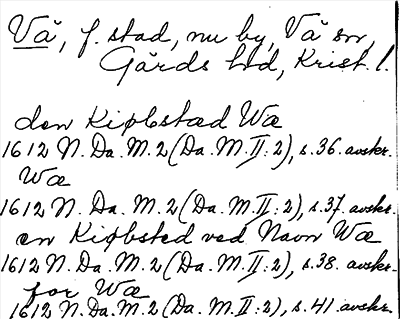 Vä, f. stad, nu by, Vä sn,
Gärds hd, Krist. l.
den Kiøbstæd Wæ
1612 N. Da. M. 2 (Da. M. II: 2), s. 36. avskr.
Wæ
1612 N. Da. M. 2 (Da. M. II: 2), s. 37. avskr.
en Kiøbsted ved Navn Wæ
1612 N. Da. M. 2 (Da. M. II: 2), s. 38. avskr.
for Wæ
1612 N. Da. M. 2 (Da. M. II: 2), s. 41. avskr.